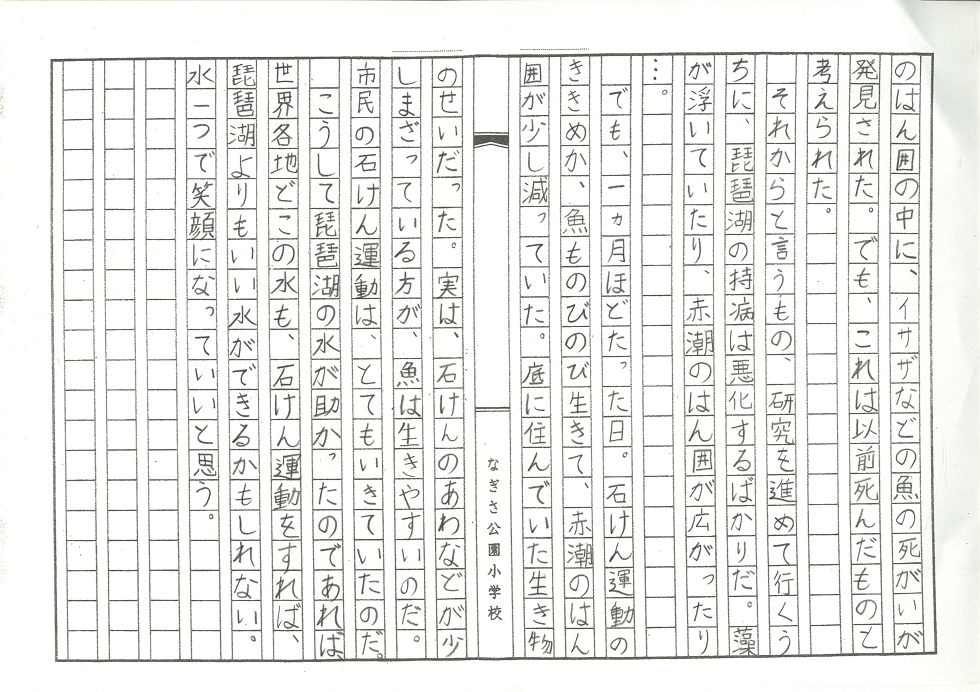 のはん囲の中に、イサザなどの魚の死がいが
発見された。でも、これは以前死んだものと
考えられた。
それからと言うもの、研究を進めて行くう
ちに、琵琶湖の持病は悪化するばかりだ。藻
が浮いていたり、赤潮のはん囲が広がったり
…。
でも、一ヵ月ほどたった日。石けん運動の
ききめか、魚ものびのび生きて、赤潮のはん
囲が少し減っていた。底に住んでいた生き物
なぎさ公園小学校
のせいだった。実は、石けんのあわなどが少
しまざっている方が、魚は生きやすいのだ。
市民の石けん運動は、とてもいきていたのだ。
こうして琵琶湖の水が助かったのであれば、
世界各地どこの水も、石けん運動をすれば、
琵琶湖よりもいい水ができるかもしれない。
水一つで笑顔になっていいと思う。